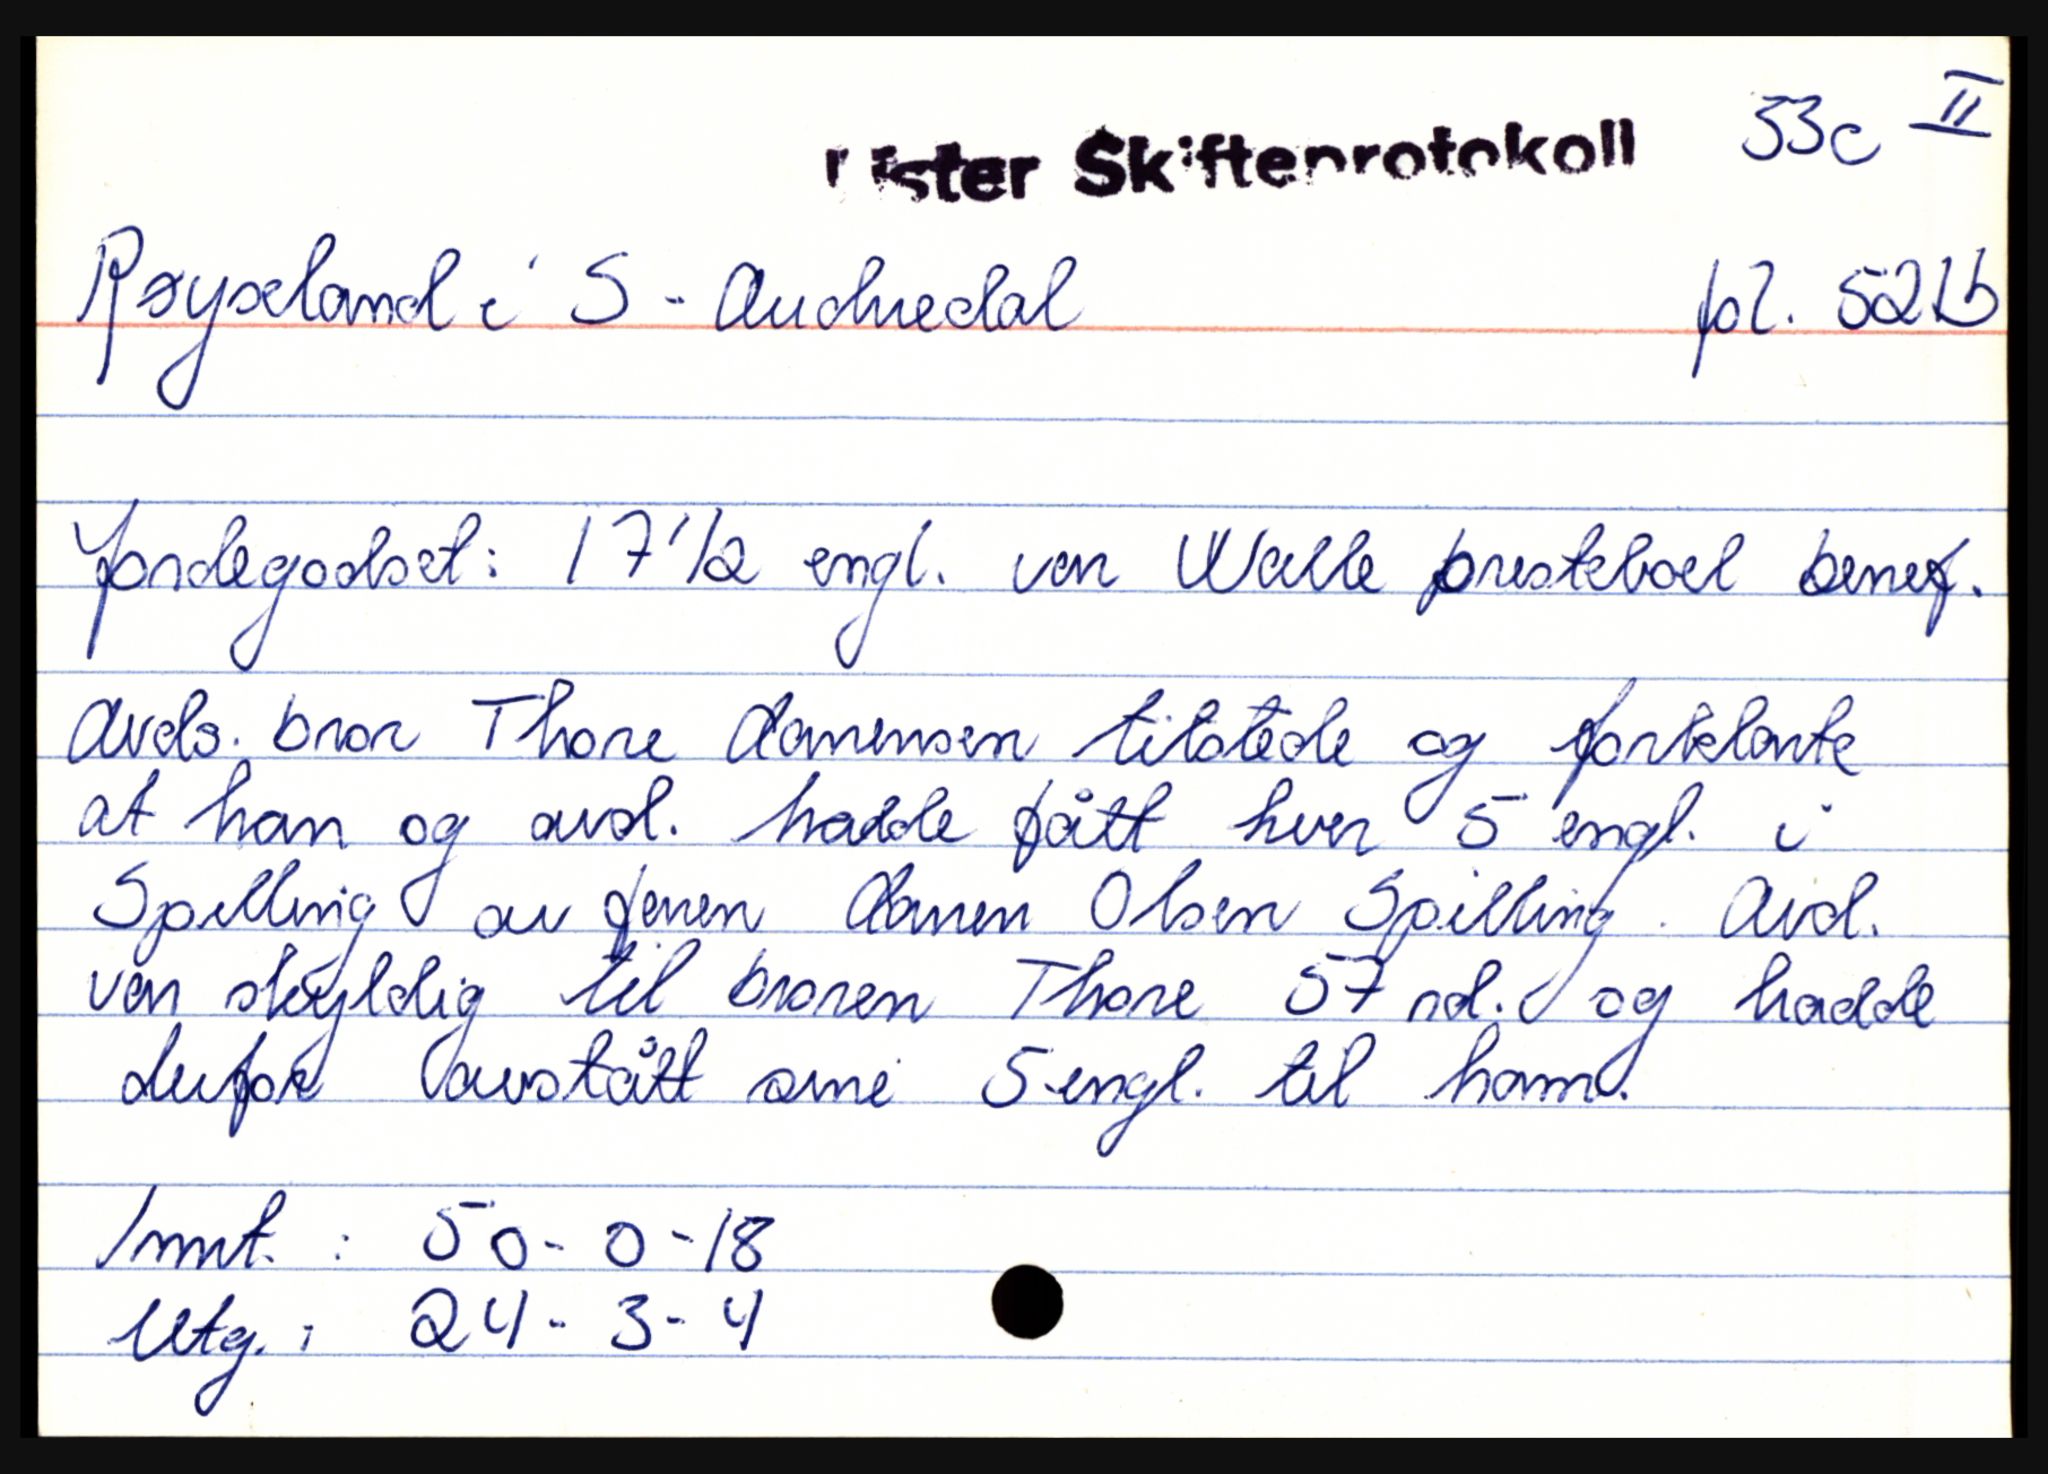 Lister Skifteprotokoll 33c II
Røyseland i S-Audnedal fol. 521b
Jordegodset: 17 1/2 engl. ver Walle presteboel benef.
Avds. bror Thore Aanensen tilstede og forklarte
at han og avd. hadde fått hver 5 engl. i
Spilling av faren Aanen Olsen Spilling. Avd.
var skyldig til broren Thore 57 rd. og hadde
derfor avstått sine 5 engl. til ham.
Innt. : 50-0-18
Utg. : 24-3-4